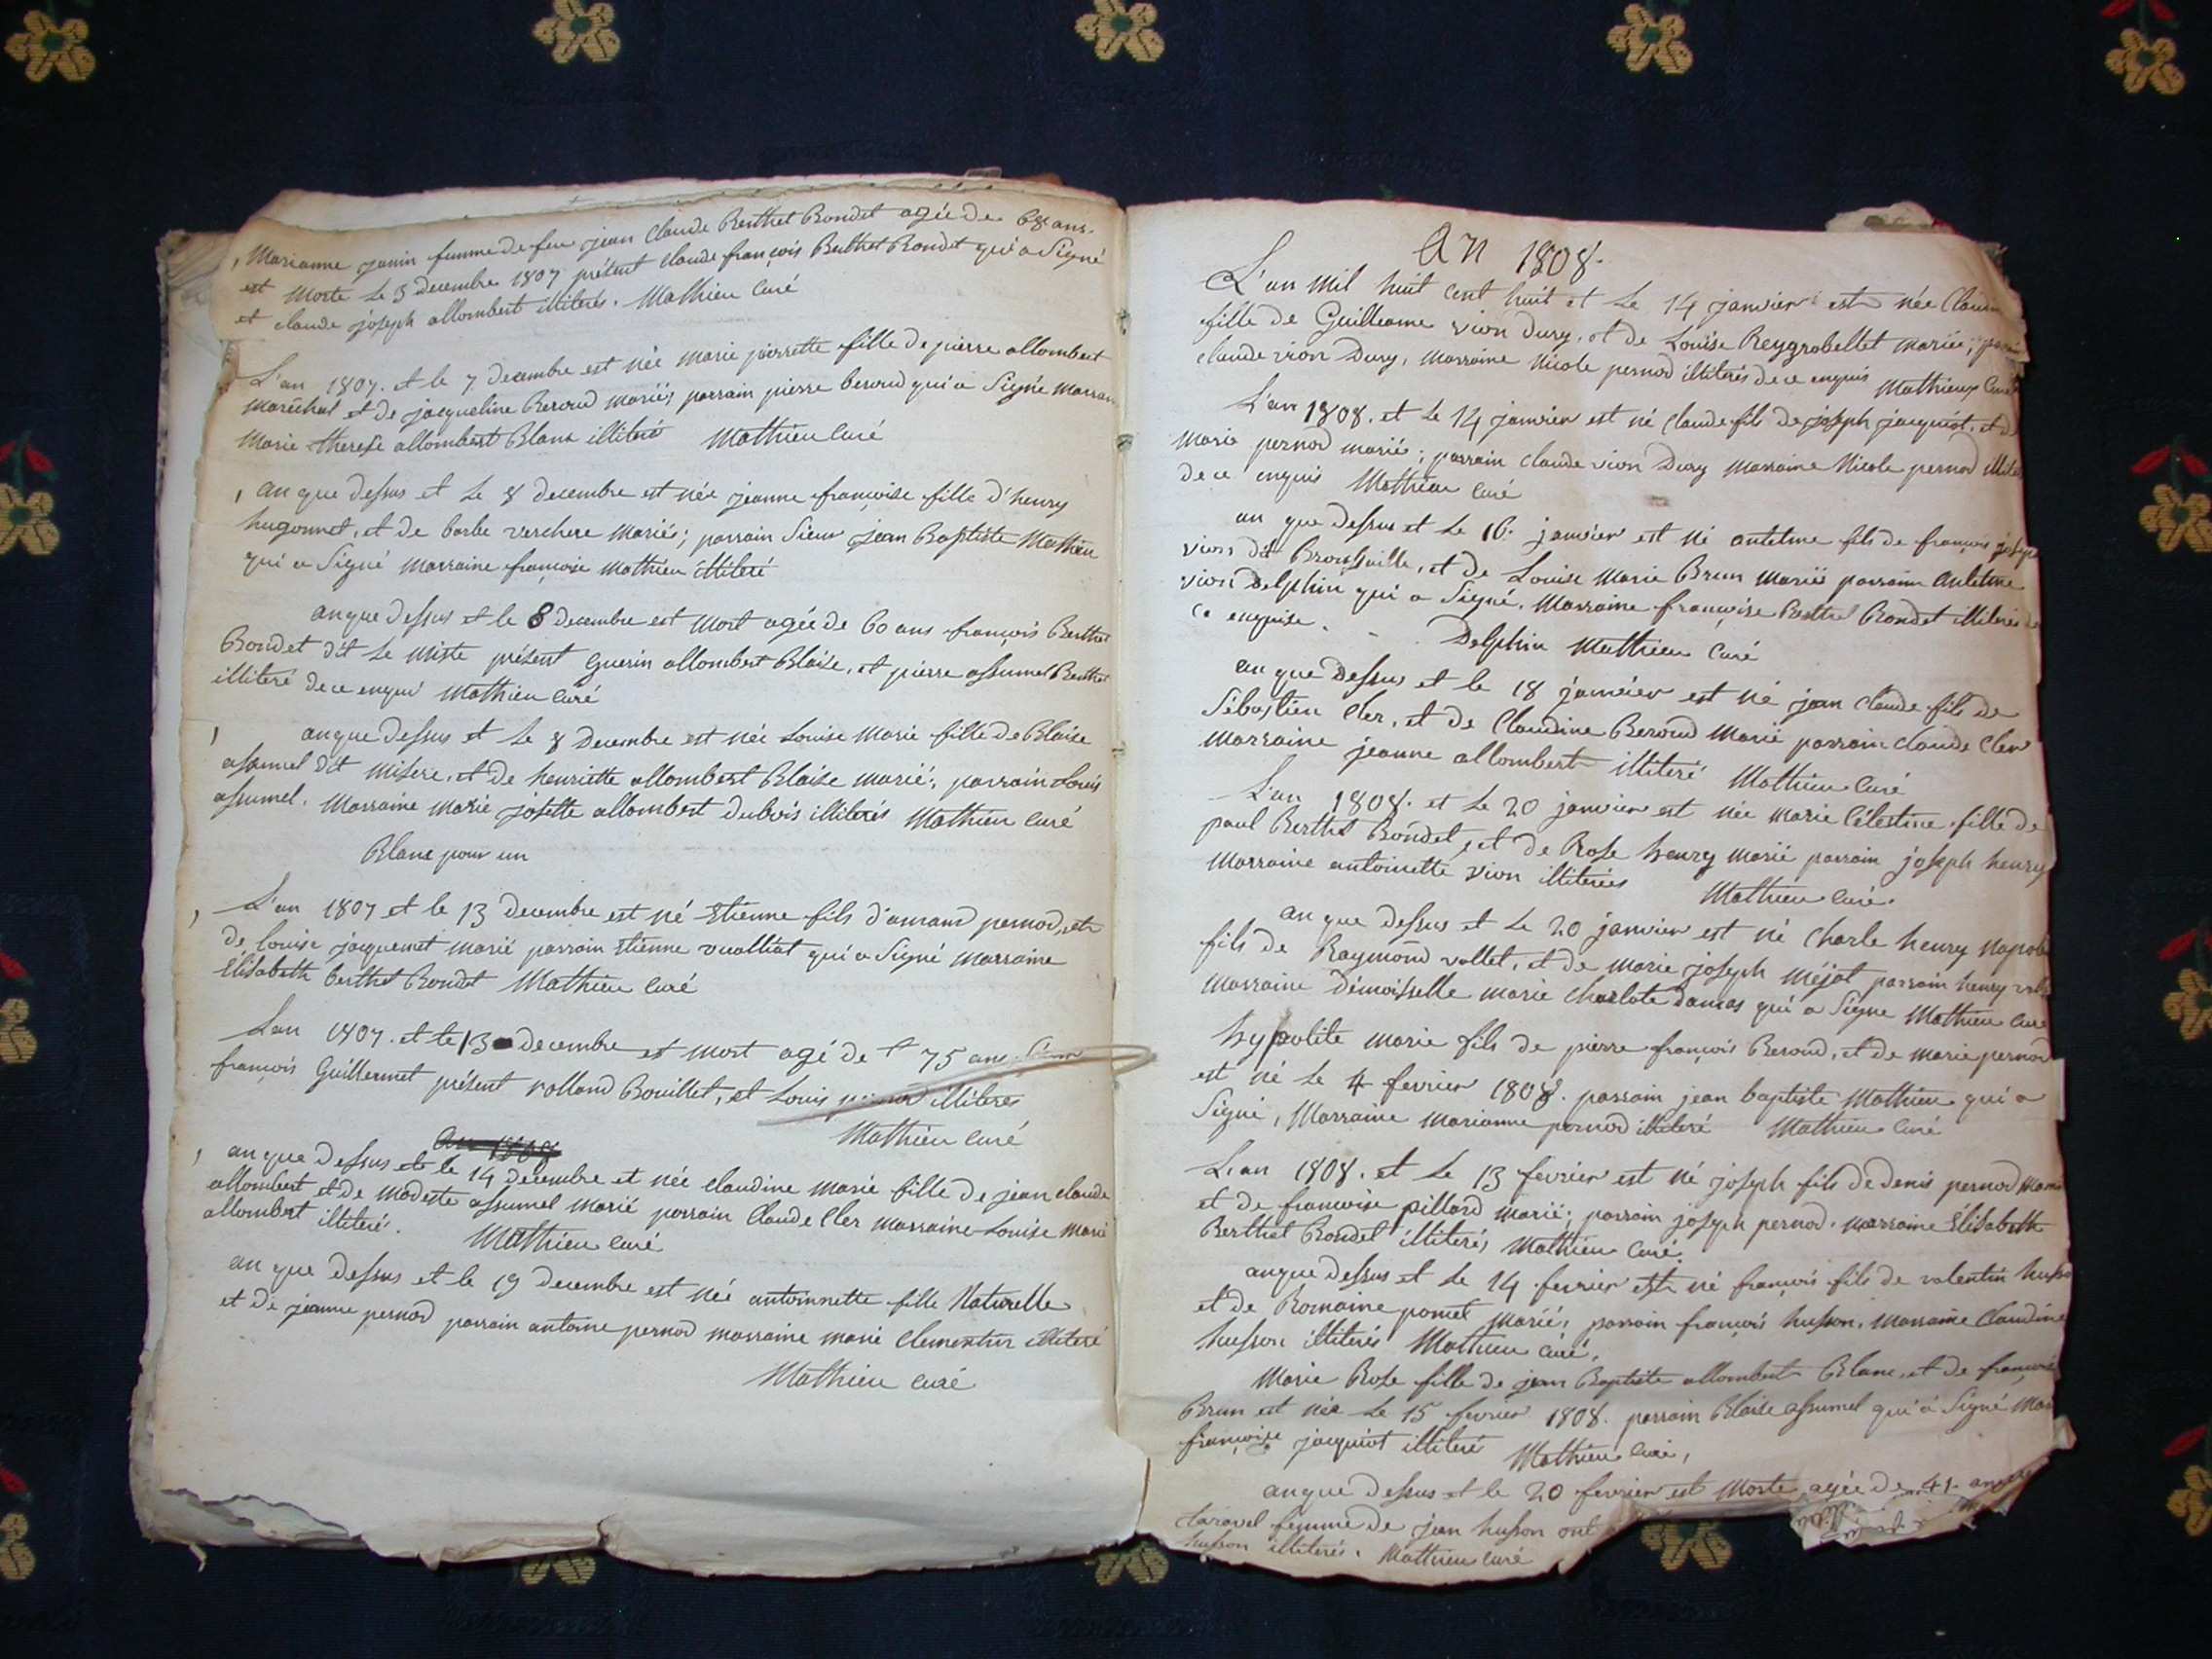 Marianne janin femme de feu jean claude Berthet Bondet agée de 68 ans.
est morte le 3 decembre 1807 présent claude françois Berthet Bondet qui a Signé
et claude joseph allombert illiterés. Mathieu Curé
L'an 1807. et le 7 decembre est née marie pierrette fille de pierre allombert
maréchal et de jacqueline Beroud mariés parrain pierre beroud qui a Signé marrain
Marie therese allombert Blanc illiteré Mathieu Curé
an que dessus et le 8 decembre est née jeanne françoise fille d'henry
hugonnet, et de barbe verchere mariés; parrain Sieur jean Baptiste Mathieu
qui a Signé marraine françoise Mathieu illiteré
an que dessus et le 8 decembre est Mort agée de 60 ans françois Berthet
Bondet dit le miste présent Guerin allombert Blaise, et pierre assumel Berthet
illiteré de ce enquis Mathieu Curé
an que dessus et le 8 Decembre est née Louise Marie fille de Blaise
assumel dit misere, et de henriette allombert Blaise marié; parrain Louis
assumel. Marraine marie josette allombert dubois illiterés Mathieu Curé
Blanc pour un
L'an 1807 et le 13 decembre est né Etienne fils d'amand pernod, et
de louise jacquemet marié parrain Etienne vuaillat qui a Signé marraine
Elisabeth berthet Bondet Mathieu Curé
L'an 1807. et le 13 decembre est mort agé de 75 ans
françois Guillermet présent rolland Bouillet, et Louis pernod illiteres
Mathieu Curé
an 1808
an que dessus et le 14 decembre et née claudine marie fille de jean claude
allombert et de modeste assumel marié parrain Claude Cler marraine Louise Marie
allombert illiterés. Mathieu Curé
an que dessus et le 19 decembre est née antoinnette fille Naturelle
et de jeanne pernod parrain antoine pernod marraine marie illiteré
Mathieu Curé
An 1808.
L'an Mil huit cent huit et le 14 janvier est née
fille de Guilleaume vion Dury, et de Louise Reygrobellet mariée;
claude vion Dury, marraine Nicole pernod illiterés de ce enquis Mathieu Curé
L'an 1808. et le 14 janvier est né Claude fils de joseph jacquiot, et d
Marie pernod mariés; parrain claude vion Dury marraine Nicole pernod illite
de ce enquis Mathieu Curé
an que dessus et le 16 janvier est né antelme fils de françois joseph
vion dit Broussaille, et de Louise Marie Brun Mariés parrain Antelme
vion Delphin qui a Signé. Marraine françoise Berthet Bondet illiterés de
ce enquise. Delphin Mathieu Curé
an que dessus et le 18 janvier est né jean claude fils de
Sébastien Cler, et de Claudine Beroud Marié parrain claude Cler
marraine jeanne allombert illiteré Mathieu Curé
L'an 1808. et le 20 janvier est née marie Célestine fille de
paul Berthet Bondet, et de Rose henry marié parrain joseph henry
marraine antoinette vion illiterées Mathieu Curé.
an que dessus et le 20 janvier est né Charle henry Napole
fils de Raymond vallet, et de marie joseph méjat parrain henry
marraine Demoisselle marie Charlote Damas qui a Signe Mathieu Curé
hypolite marie fils de pierre françois Beroud, et de marie pernod
est né le 4 fevrier 1808. parrain jean baptiste Mathieu qui a
Signé, Marraine Marianne pernod illiteré Mathieu Curé
L'an 1808. et le 13 fevrier est né joseph fils de denis pernod
et de francoise pillard marié; parrain joseph pernod. marraine Elisabeth
Berthet Bondet illiterés Mathieu Curé
an que dessus et le 14 fevrier est né françois fils de valentin husson
et de Romaine pomet mariés parrain françois husson, marraine Claudine
husson illiterés Mathieu Curé.
Marie Rose fille de jean Baptiste allombert Blanc, et de françoise
Brun est née le 15 fevrier 1808. parrain Blaise assumel qui a Signé Mar
françoise jacquiot illiteré Mathieu Curé,
an que dessus et le 20 fevrier est Morte agée de 41 ans
Caravel femme de jean husson ont
husson illiterés. Mathieu Curé